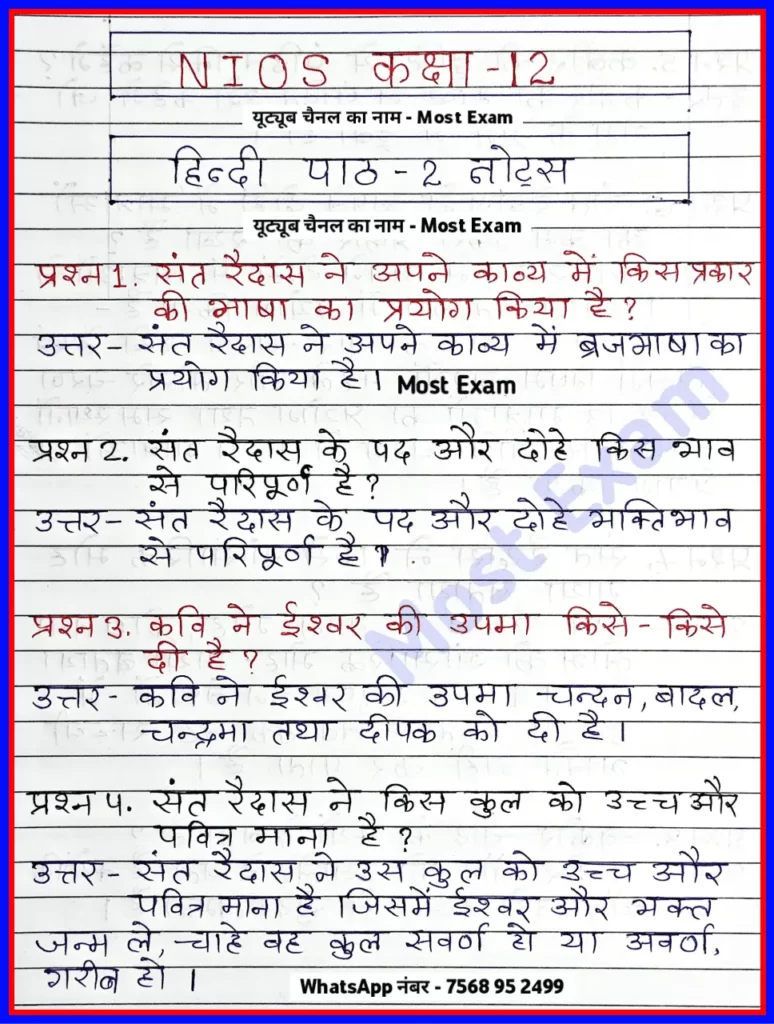 NIOS कक्षा -12
यूट्यूब चैनल का नाम - Most Exam
हिन्दी पाठ - 2 नोट्स
यूट्यूब चैनल का नाम - Most Exam
प्रश्न 1. संत रैदास ने अपने काव्य में किस प्रकार
की भाषा का प्रयोग किया है ?
उत्तर- संत रैदास ने अपने काव्य में ब्रजभाषा का
प्रयोग किया है। Most Exam
प्रश्न 2. संत रैदास के पद और दोहे किस भाव
से परिपूर्ण है ?
उत्तर- संत रैदास के पद और दोहे भक्तिभाव
से परिपूर्ण है।
Most Exam
प्रश्न 3. कवि ने ईश्वर की उपमा किसे - किसे
दी है ?
उत्तर- कवि ने ईश्वर की उपमा चन्दन, बादल,
चन्द्रमा तथा दीपक को दी है।
प्रश्न 4. संत रैदास ने किस कुल को उच्च और
पवित्र माना है ?
उत्तर- संत रैदास ने उस कुल को उच्च और
पवित्र माना है जिसमें ईश्वर और भक्त
जन्म ले, चाहे वह कुल सवर्ण हो या अवर्ण,
गरीब हो ।
WhatsApp नंबर - 7568 95 2499